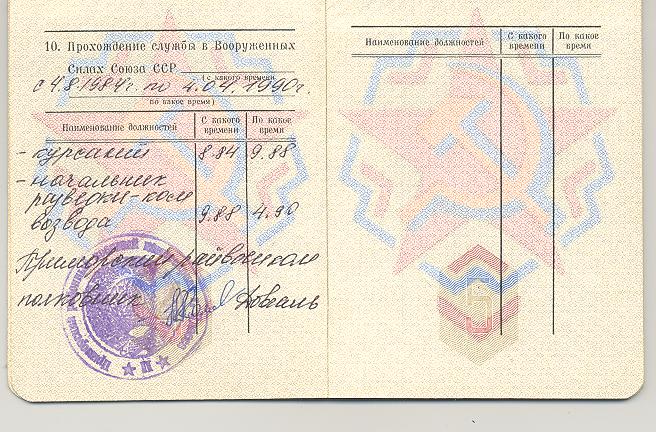 10. Прохождение службы в Вооруженных
Силах Союза ССР
(с какого времени
с 4.8.1984г. по 4.04.1990г.
по какое время)
Наименование должностей С какого времени По какое время
- курсант 8.84 9.88
- начальник
разведки-ком.
взвода 9.88 4.90
Приморский райвоенком
полковник Довгаль
Наименование должностей С какого времени По какое время